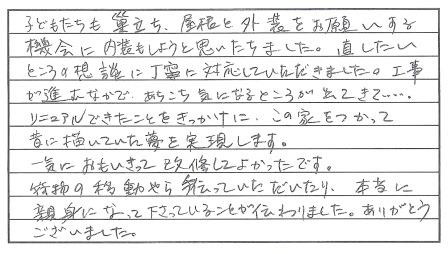 子どもたちも巣立ち、屋根と外装をお願いする
機会に内装もしようと思いたちました。直したい
ところの相談に丁寧に対応していただきました。工事
が進むなかで、あちこち気になるところが出てきて……。
リニュアルできたことをきっかけに、この家をつかって
昔に描いていた夢を実現します。
一気におもいきって改修してよかったです。
荷物の移動やら手伝っていただいたり、本当に
親身になって下さっていることが伝わりました。ありがとう
ございました。